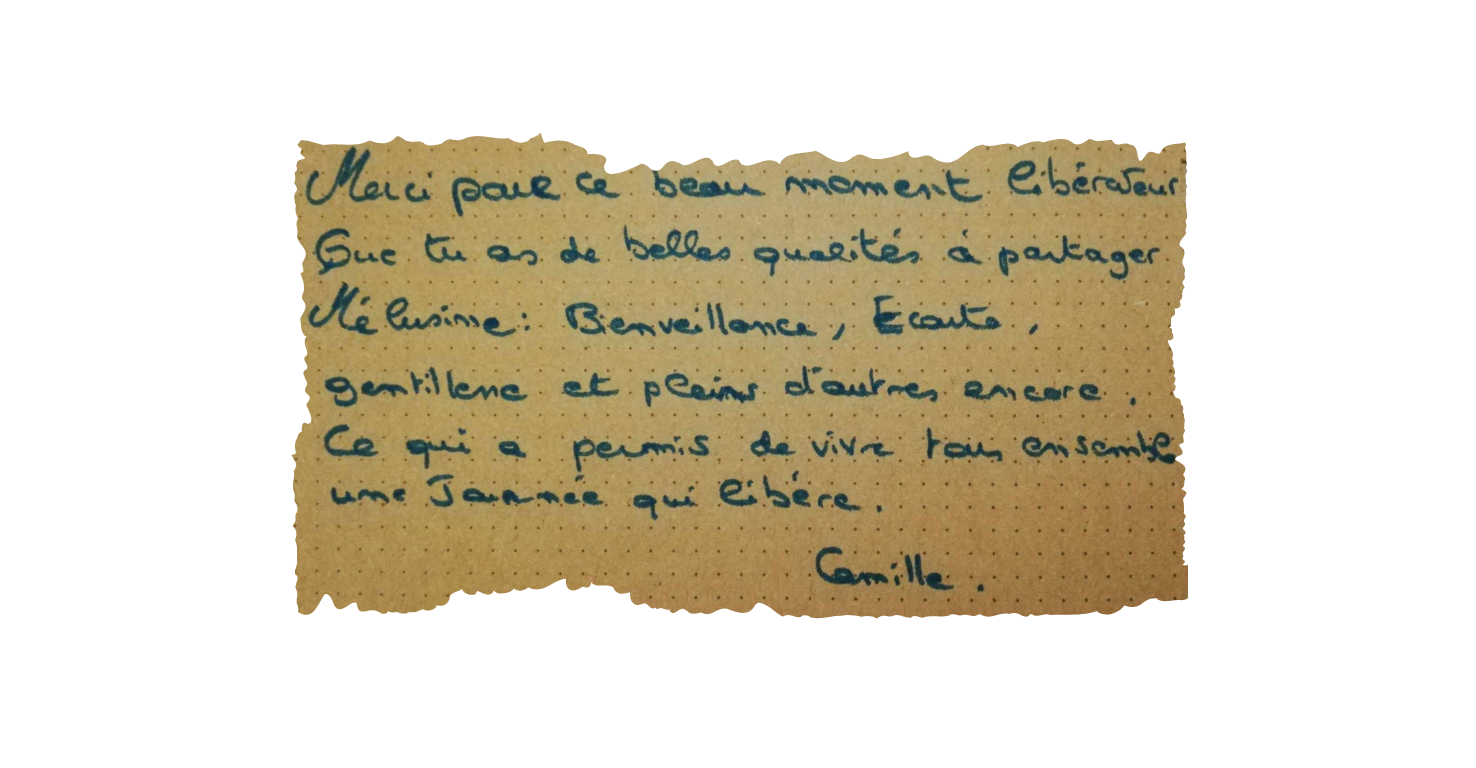 Merci pour ce beau moment libérateur
Que tu as de belles qualités à partager
Mélusine : Bienveillance, Ecoute,
gentillesse et pleins d'autres encore.
Ce qui a permis de vivre tous ensemble
une Journée qui libère.
Camille.